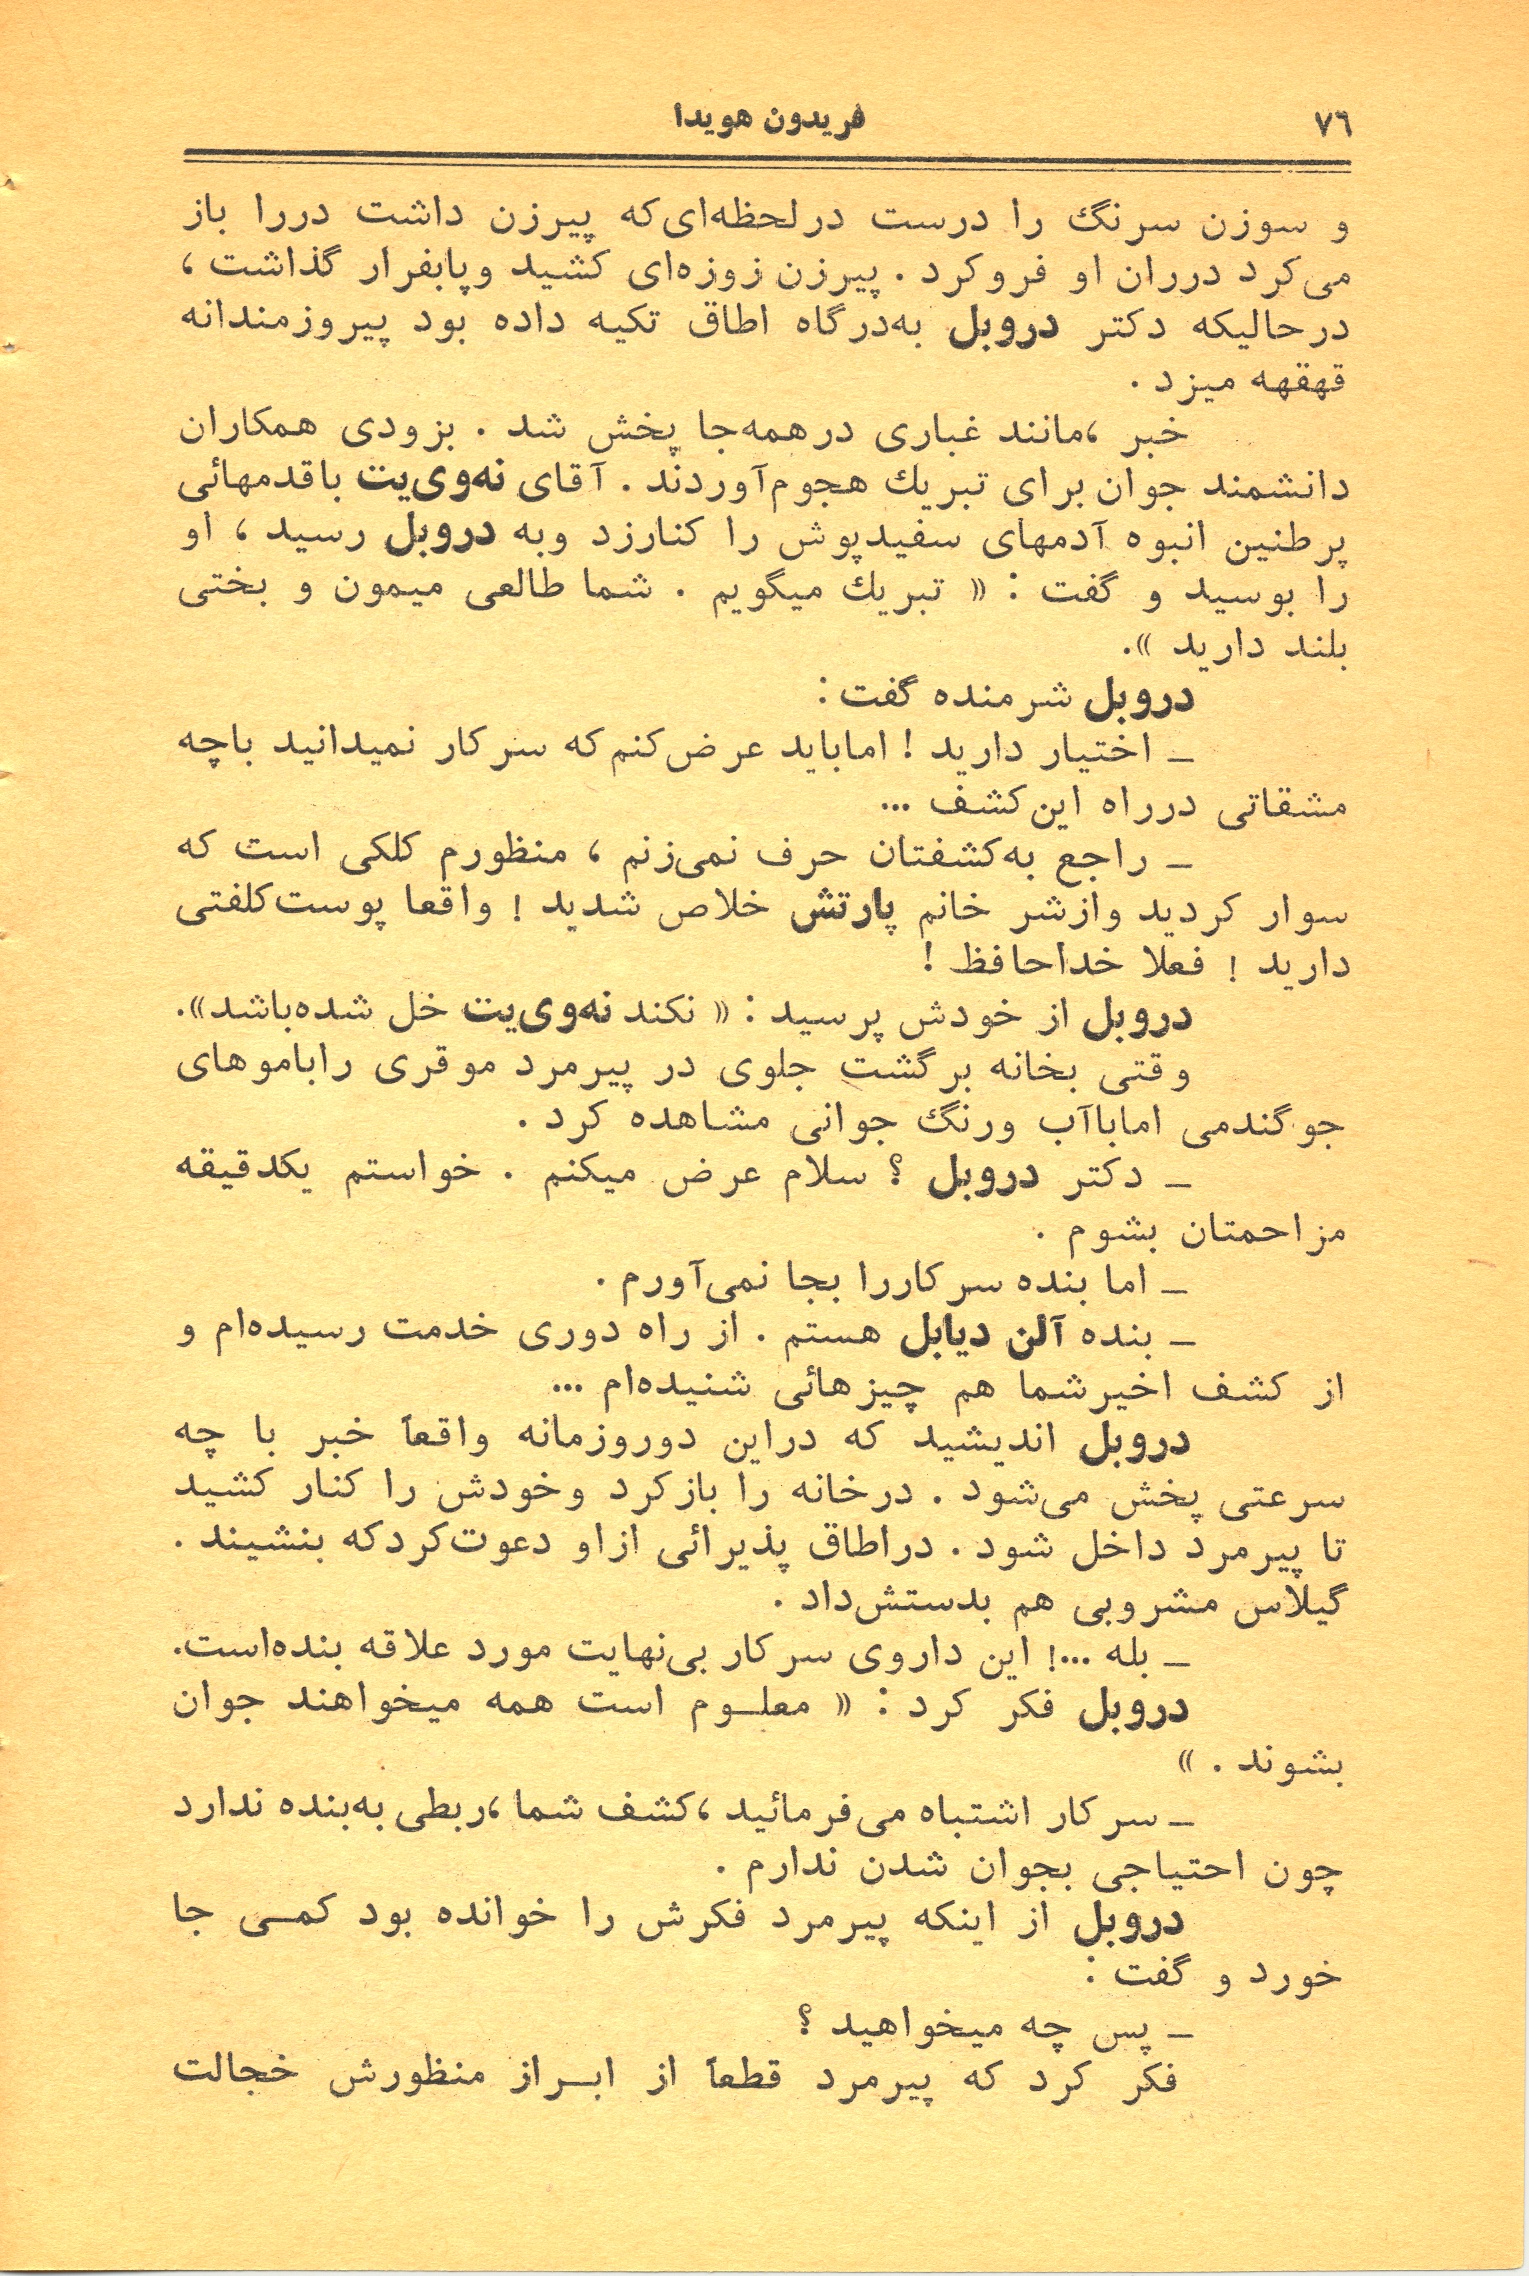 ۷٦
فریدون هویدا
و سوزن سرنگ را درست درلحظه‌ای‌که پیرزن داشت دررا باز
می‌کرد درران او فروکرد . پیرزن زوزه‌ای کشید وپابفرار گذاشت ،
درحالیکه دکتر دروبل به‌درگاه اطاق تکیه داده بود پیروزمندانه
قهقهه میزد .
خبر ،مانند غباری درهمه‌جا پخش شد . بزودی همکاران
دانشمند جوان برای تبریك هجوم‌آوردند . آقای نه‌وی‌یت باقدمهائی
پرطنین انبوه آدمهای سفیدپوش را کنارزد وبه دروبل رسید ، او
را بوسید و گفت : « تبریك میگویم . شما طالعی میمون و بختی
بلند دارید ».
دروبل شرمنده گفت :
_ اختیار دارید ! اماباید عرض‌کنم‌که سرکار نمیدانید باچه
مشقاتی درراه این‌کشف ...
_ راجع به‌کشفتان حرف نمی‌زنم ، منظورم کلکی است که
سوار کردید وازشر خانم پارتش خلاص شدید ! واقعا پوست‌کلفتی
دارید ! فعلا خداحافظ !
دروبل از خودش پرسید : « نکند نه‌وی‌یت خل شده‌باشد».
وقتی بخانه برگشت جلوی در پیرمرد موقری راباموهای
جوگندمی اماباآب ورنگ جوانی مشاهده کرد .
_ دکتر دروبل ؟ سلام عرض میکنم . خواستم یکدقیقه
مزاحمتان بشوم .
_ اما بنده سرکاررا بجا نمی‌آورم .
_ بنده آلن دیابل هستم . از راه دوری خدمت رسیده‌ام و
از کشف اخیرشما هم چیزهائی شنیده‌ام ...
دروبل اندیشید که دراین دوروزمانه واقعاً خبر با چه
سرعتی پخش می‌شود . درخانه را بازکرد وخودش را کنار کشید
تا پیرمرد داخل شود . دراطاق پذیرائی ازاو دعوت‌کردکه بنشیند .
گیلاس مشروبی هم بدستش‌داد .
_ بله ...! این داروی سرکار بی‌نهایت مورد علاقه بنده‌است.
دروبل فکر کرد : « معلـوم است همه میخواهند جوان
بشوند . »
_ سرکار اشتباه می‌فرمائید ،کشف شما ،ربطی به‌بنده ندارد
چون احتیاجی بجوان شدن ندارم .
دروبل از اینکه پیرمرد فکرش را خوانده بود کمـی جا
خورد و گفت :
_ پس چه میخواهید ؟
فکر کرد که پیرمرد قطعاً از ابـراز منظورش خجالت